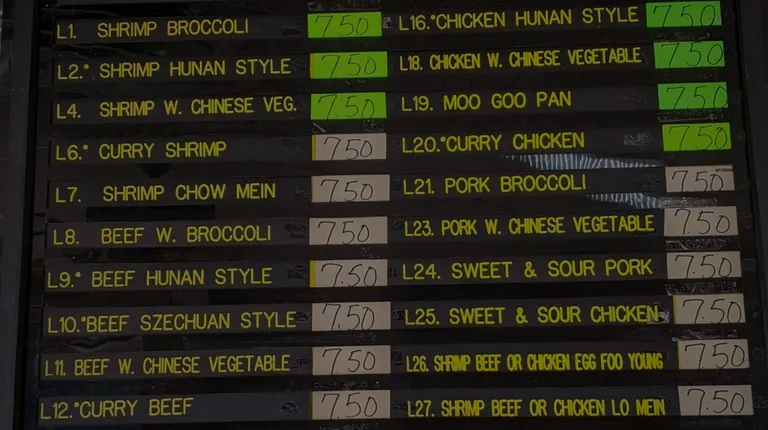 L1. SHRIMP BROCCOLI 7.50
L2.* SHRIMP HUNAN STYLE 7.50
L4. SHRIMP W. CHINESE VEG. 7.50
L6.* CURRY SHRIMP 7.50
L7. SHRIMP CHOW MEIN 7.50
L8. BEEF W. BROCCOLI 7.50
L9.* BEEF HUNAN STYLE 7.50
L10.*BEEF SZECHUAN STYLE 7.50
L11. BEEF W. CHINESE VEGETABLE 7.50
L12.*CURRY BEEF 7.50
L16.*CHICKEN HUNAN STYLE 7.50
L18. CHICKEN W. CHINESE VEGETABLE 7.50
L19. MOO GOO PAN 7.50
L20.*CURRY CHICKEN 7.50
L21. PORK BROCCOLI 7.50
L23. PORK W. CHINESE VEGETABLE 7.50
L24. SWEET & SOUR PORK 7.50
L25. SWEET & SOUR CHICKEN 7.50
L26. SHRIMP BEEF OR CHICKEN EGG FOO YOUNG 7.50
L27. SHRIMP BEEF OR CHICKEN LO MEIN 7.50